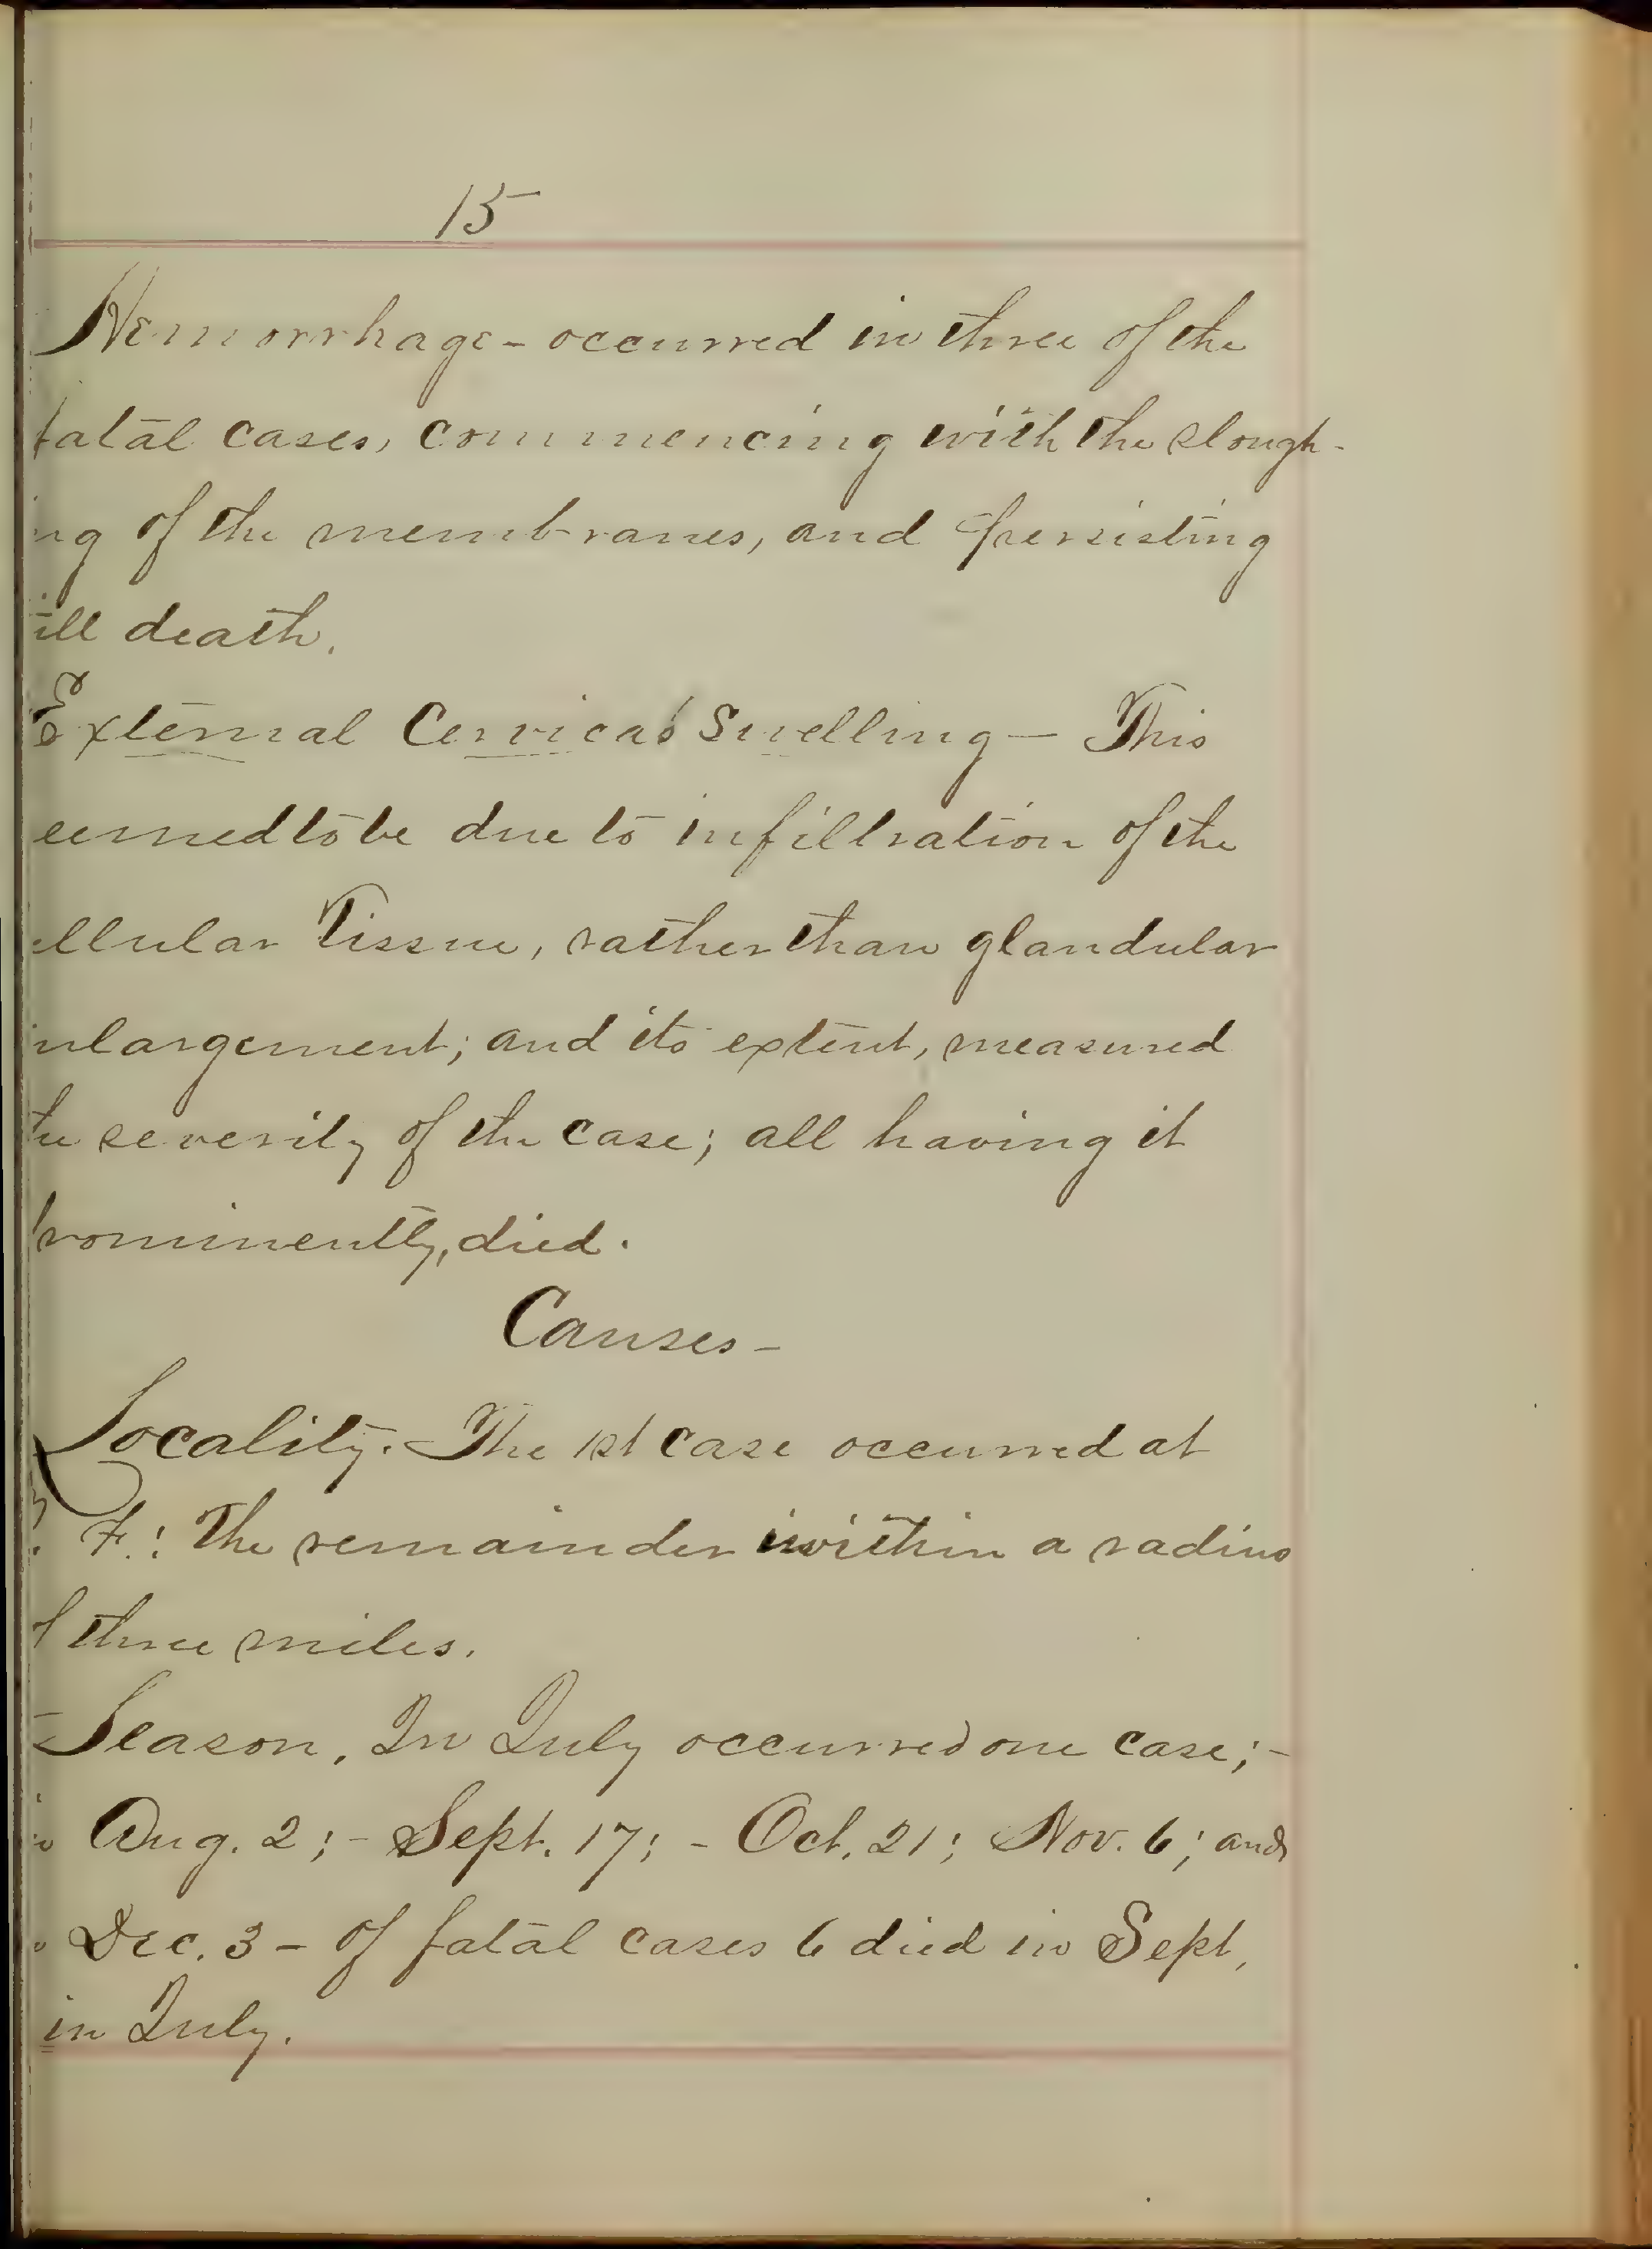 15
Hemorrhage - occurred in three of the
fatal cases, commencing with the slough-
ng of the membranes, and persisting
ill death.
External Cervical Swelling — This
eemed to be due to infiltration of the
ellular Tissue, rather than glandular
nlargement; and its extent, measured
the severity of the case; all having it
rominently, died.
Causes -
Locality. - The 1st case occurred at
F.: The remainder within a radius
f three miles.
Season. In July occurred one case; -
Aug. 2; - Sept. 17; - Oct. 21; Nov. 6; and
Dec. 3 - of fatal cases 6 died in Sept,
in July.